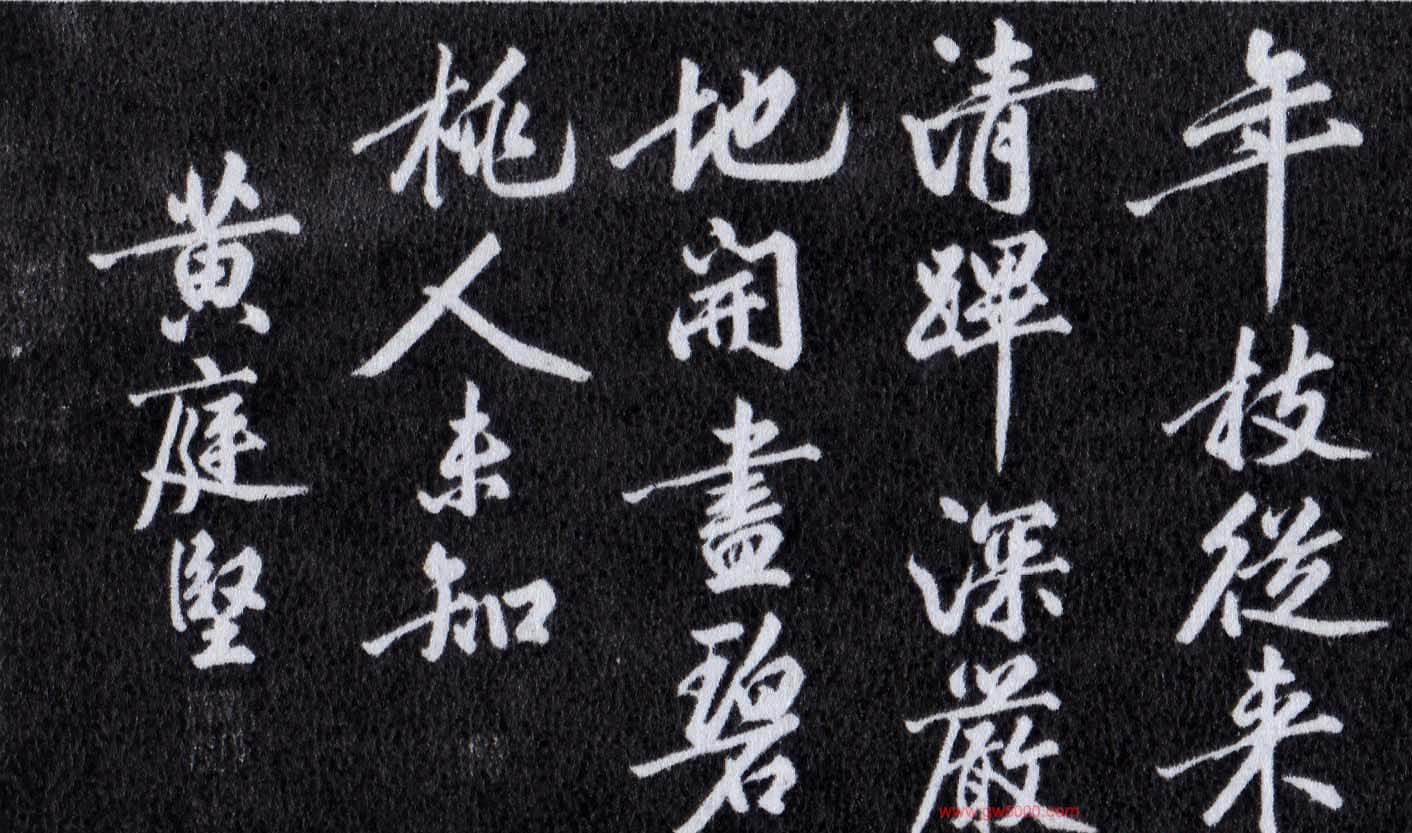 年技從来
清蹕深嚴
地開盡碧
桃人未知
黄庭堅
www.gw8000.com